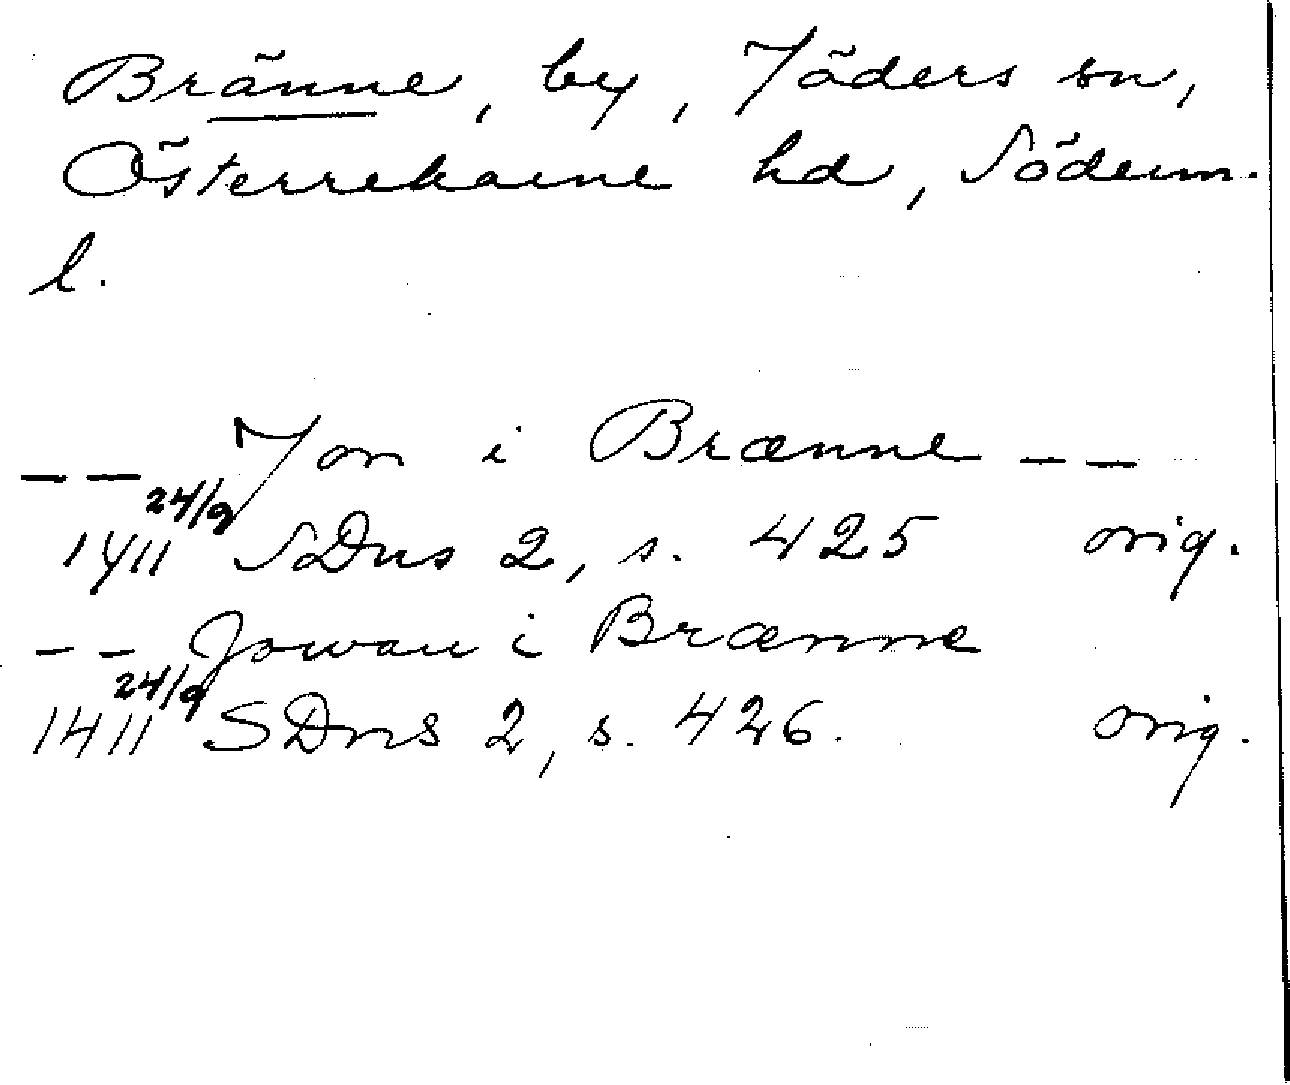 Bränne, by, Jäders sn,
Österrekarne hd, Söderm.
l.
-- Jon i Brænne --
24/9
1411 SDns 2, s. 425 orig.
-- Jowan i Brænne
24/9
1411 SDns 2, s. 426. orig.